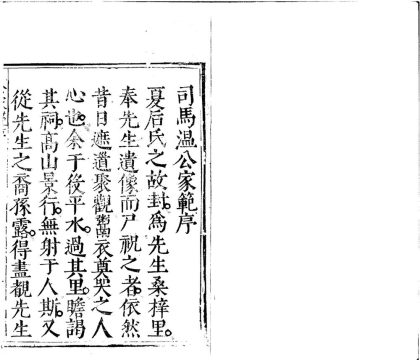 司馬溫公家範序
夏后氏之故封爲先生桑梓里
奉先生遺像而尸祝之者依然
昔日遮道聚觀鬻衣奠哭之人
心也余于後平水過其里瞻謁
其祠高山景行無射于人斯又
從先生之裔孫露得盡覩先生